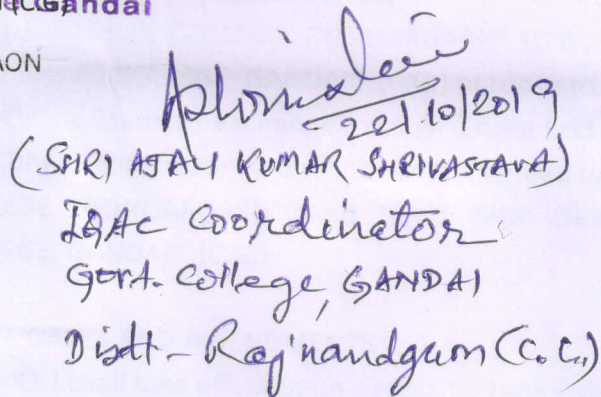 Gandai
AON
22/10/2019
(SHRI AJAY KUMAR SHRIVASTAVA)
IQAC Coordinator
Govt. College, GANDAI
Distt.- Rajnandgaon (C.G.)